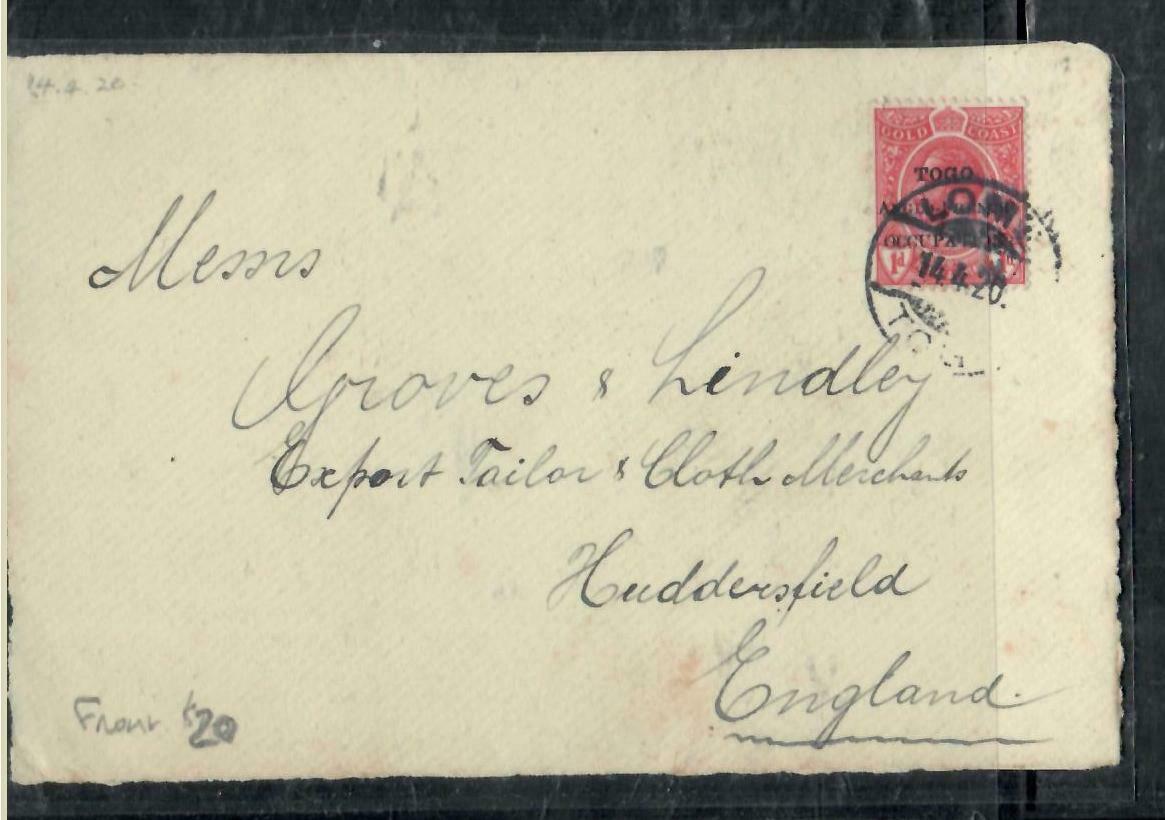 14.4.20.
GOLD COAST
TOGO
OCCUPATION
1d
LOME
14.4.20.
TOGO
Messrs
Groves & Lindley
Export Tailor & Cloth Merchants
Huddersfield
England.
Front $20